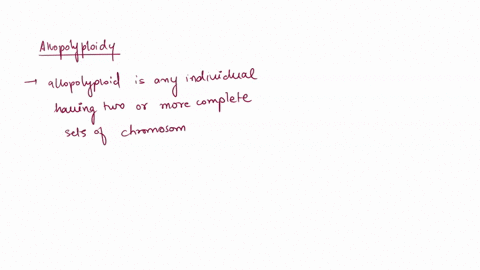 Allopolyploidy
→ allopolyploid is any individual
having two or more complete
sets of chromosom